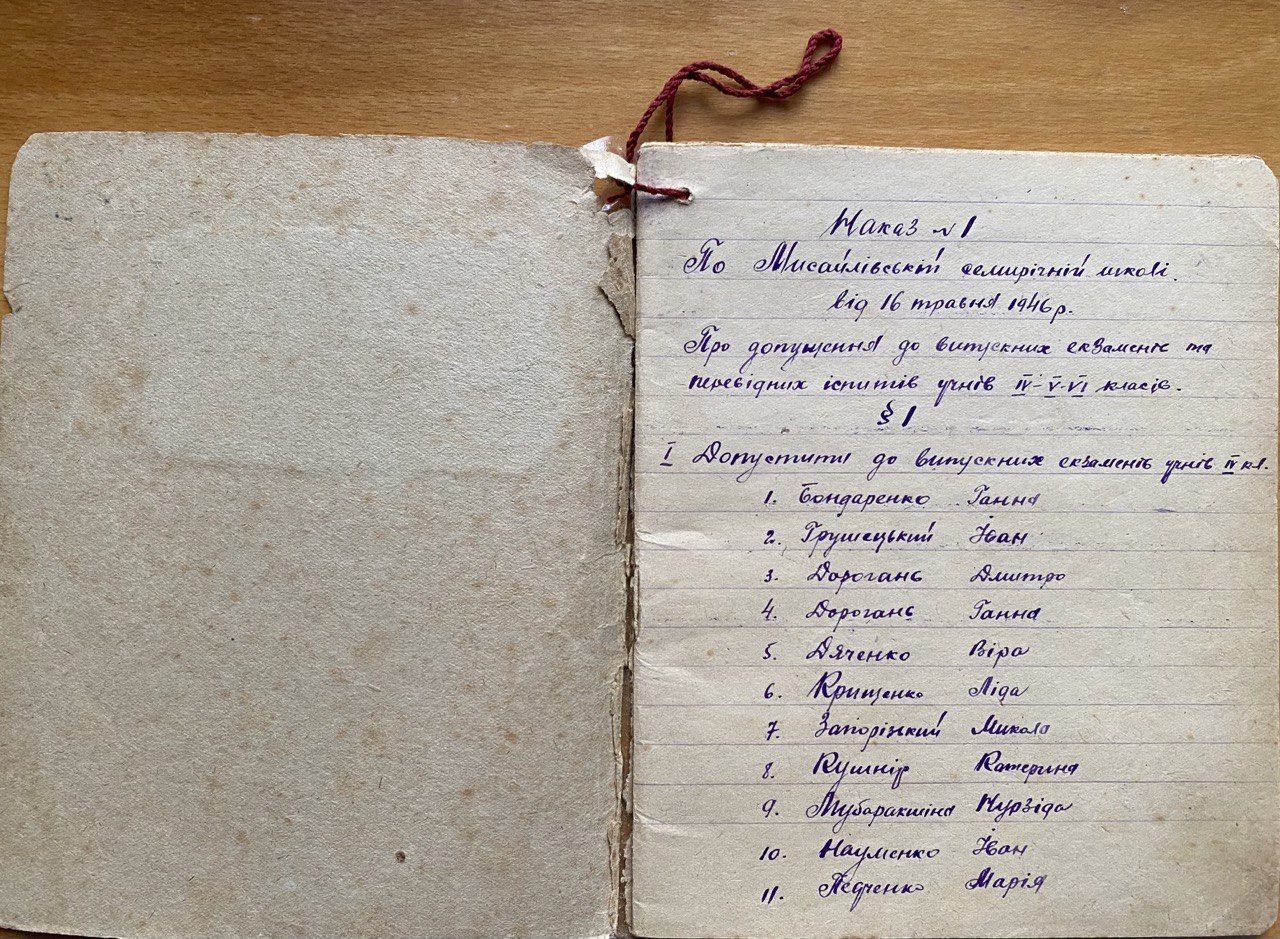 Наказ № 1
По Мисайлівській семирічній школі.
від 16 травня 1946 р.
Про допущення до випускних екзаменів та
перевідних іспитів учнів IV-V-VI класів.
§ 1
I Допустити до випускних екзаменів учнів IV кл.
1. Бондаренко Ганна
2. Грушецький Іван
3. Дорогань Дмитро
4. Дорогань Ганна
5. Дяченко Віра
6. Крищенко Ліда
7. Запорізький Микола
8. Кушнір Катерина
9. Мубаракшіна Нурзіда
10. Науменко Іван
11. Педченко Марія